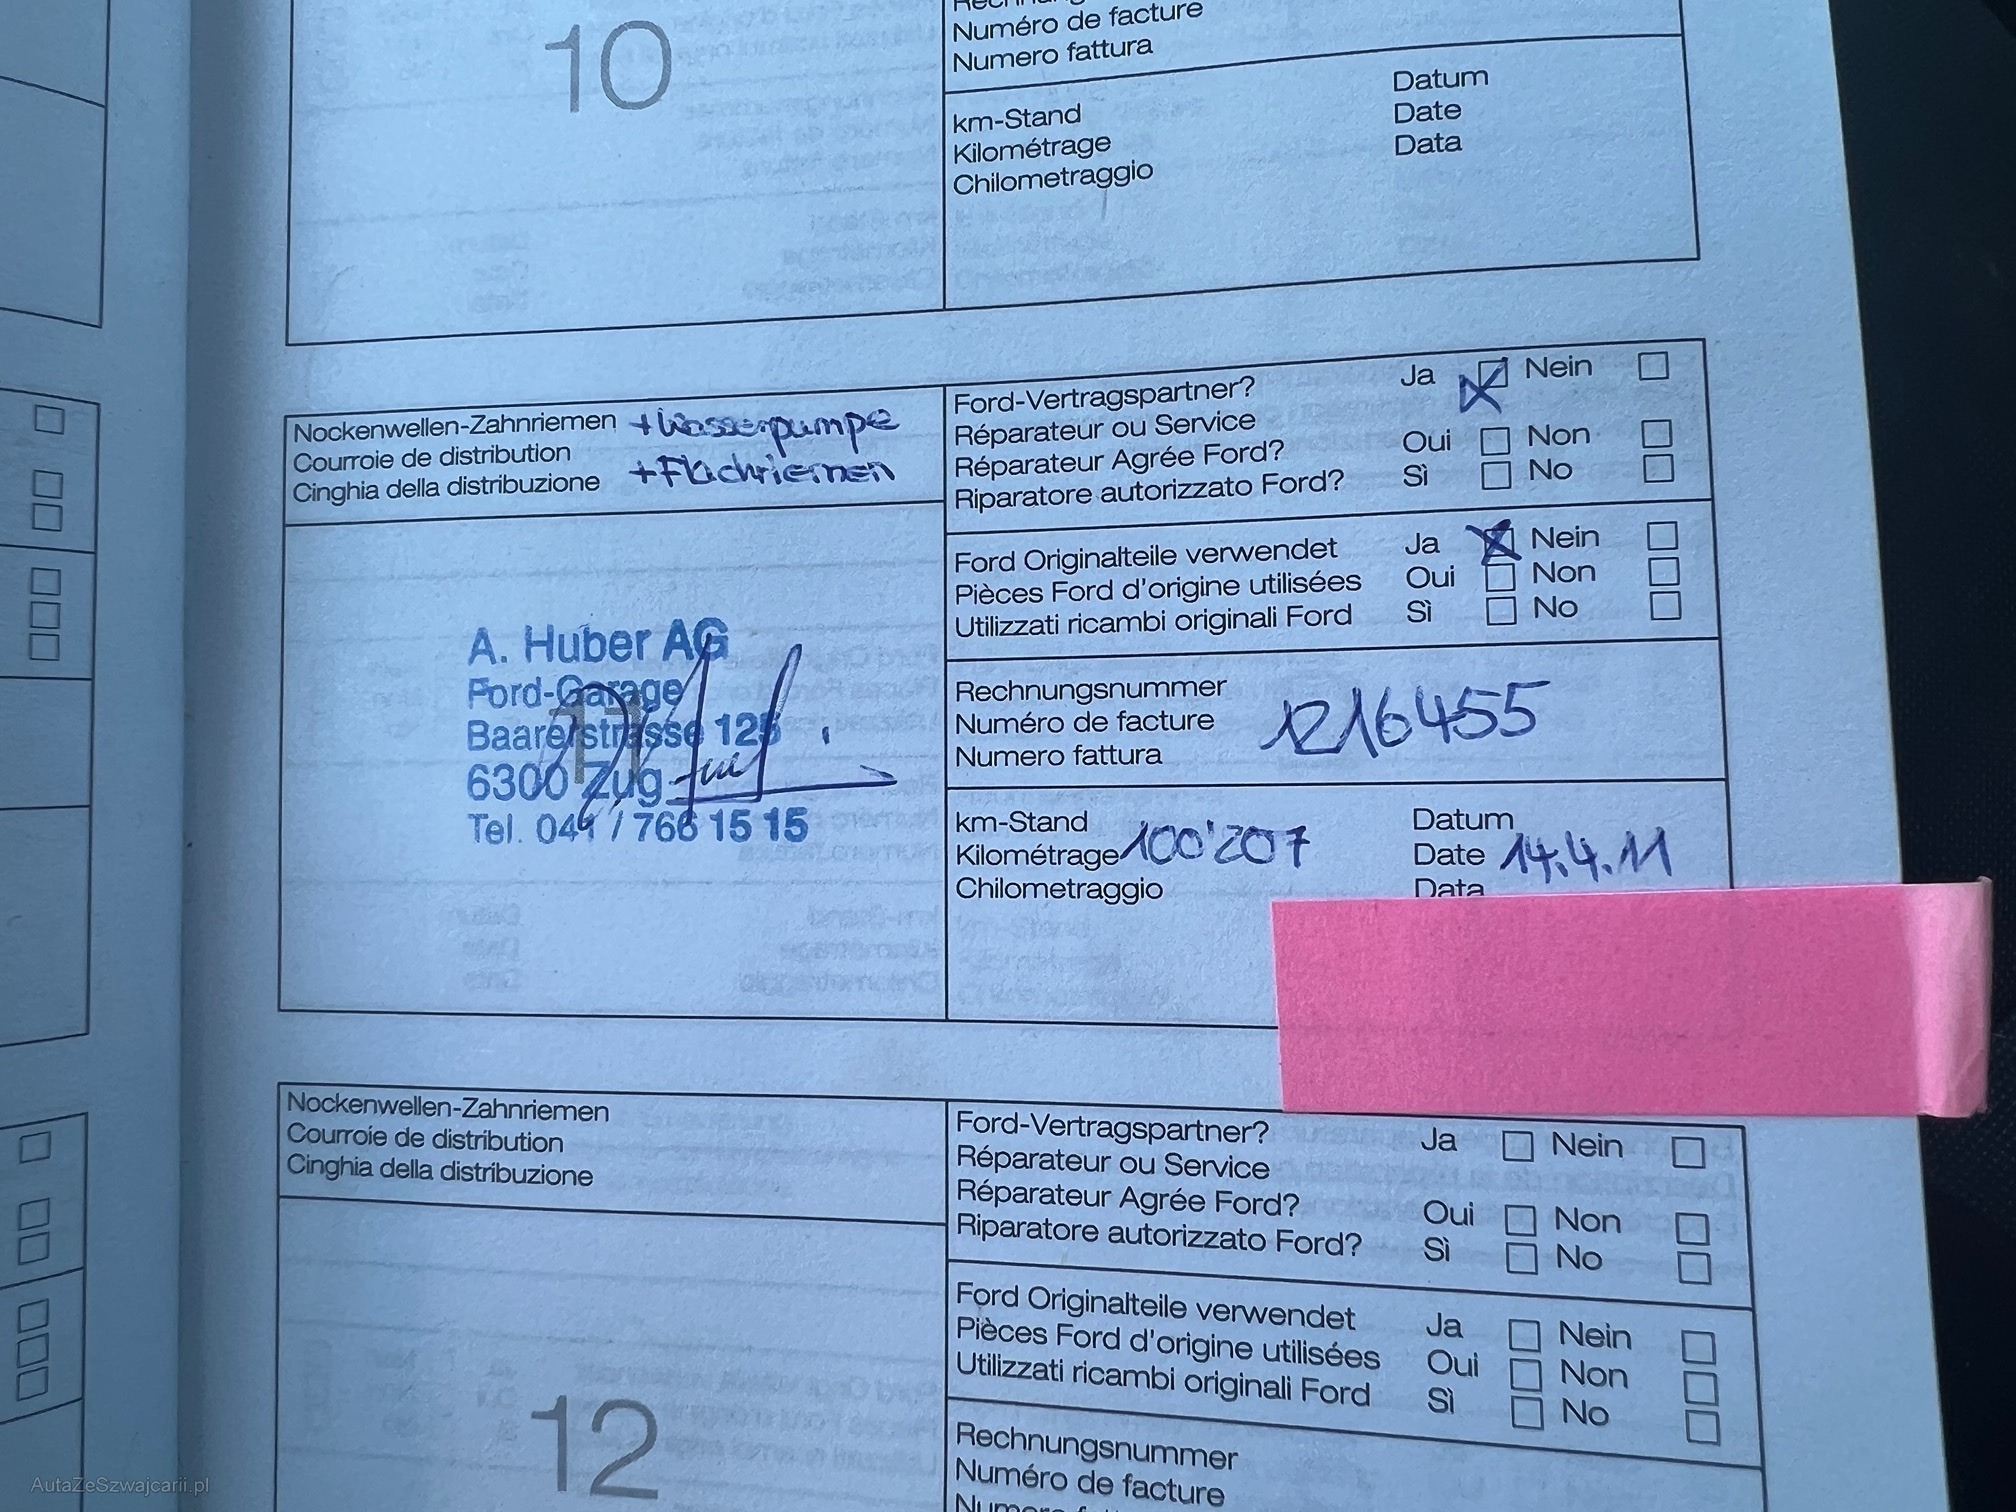 10
Numéro de facture
Numero fattura
km-Stand
Kilométrage
Chilometraggio
Datum
Date
Data
Nockenwellen-Zahnriemen + Wasserpumpe
Courroie de distribution
Cinghia della distribuzione + Flachriemen
Ford-Vertragspartner? Ja Nein
Réparateur ou Service
Réparateur Agrée Ford? Oui Non
Riparatore autorizzato Ford? Sì No
Ford Originalteile verwendet Ja Nein
Pièces Ford d'origine utilisées Oui Non
Utilizzati ricambi originali Ford Sì No
11
A. Huber AG
Ford-Garage
Baarerstrasse 125
6300 Zug
Tel. 041 / 766 15 15
Rechnungsnummer
Numéro de facture 1216455
Numero fattura
km-Stand
Kilométrage 100'207
Chilometraggio
Datum
Date 14.4.11
Data
Nockenwellen-Zahnriemen
Courroie de distribution
Cinghia della distribuzione
Ford-Vertragspartner? Ja Nein
Réparateur ou Service
Réparateur Agrée Ford? Oui Non
Riparatore autorizzato Ford? Sì No
Ford Originalteile verwendet Ja Nein
Pièces Ford d'origine utilisées Oui Non
Utilizzati ricambi originali Ford Sì No
12
Rechnungsnummer
Numéro de facture
AutaZeSzwajcarii.pl